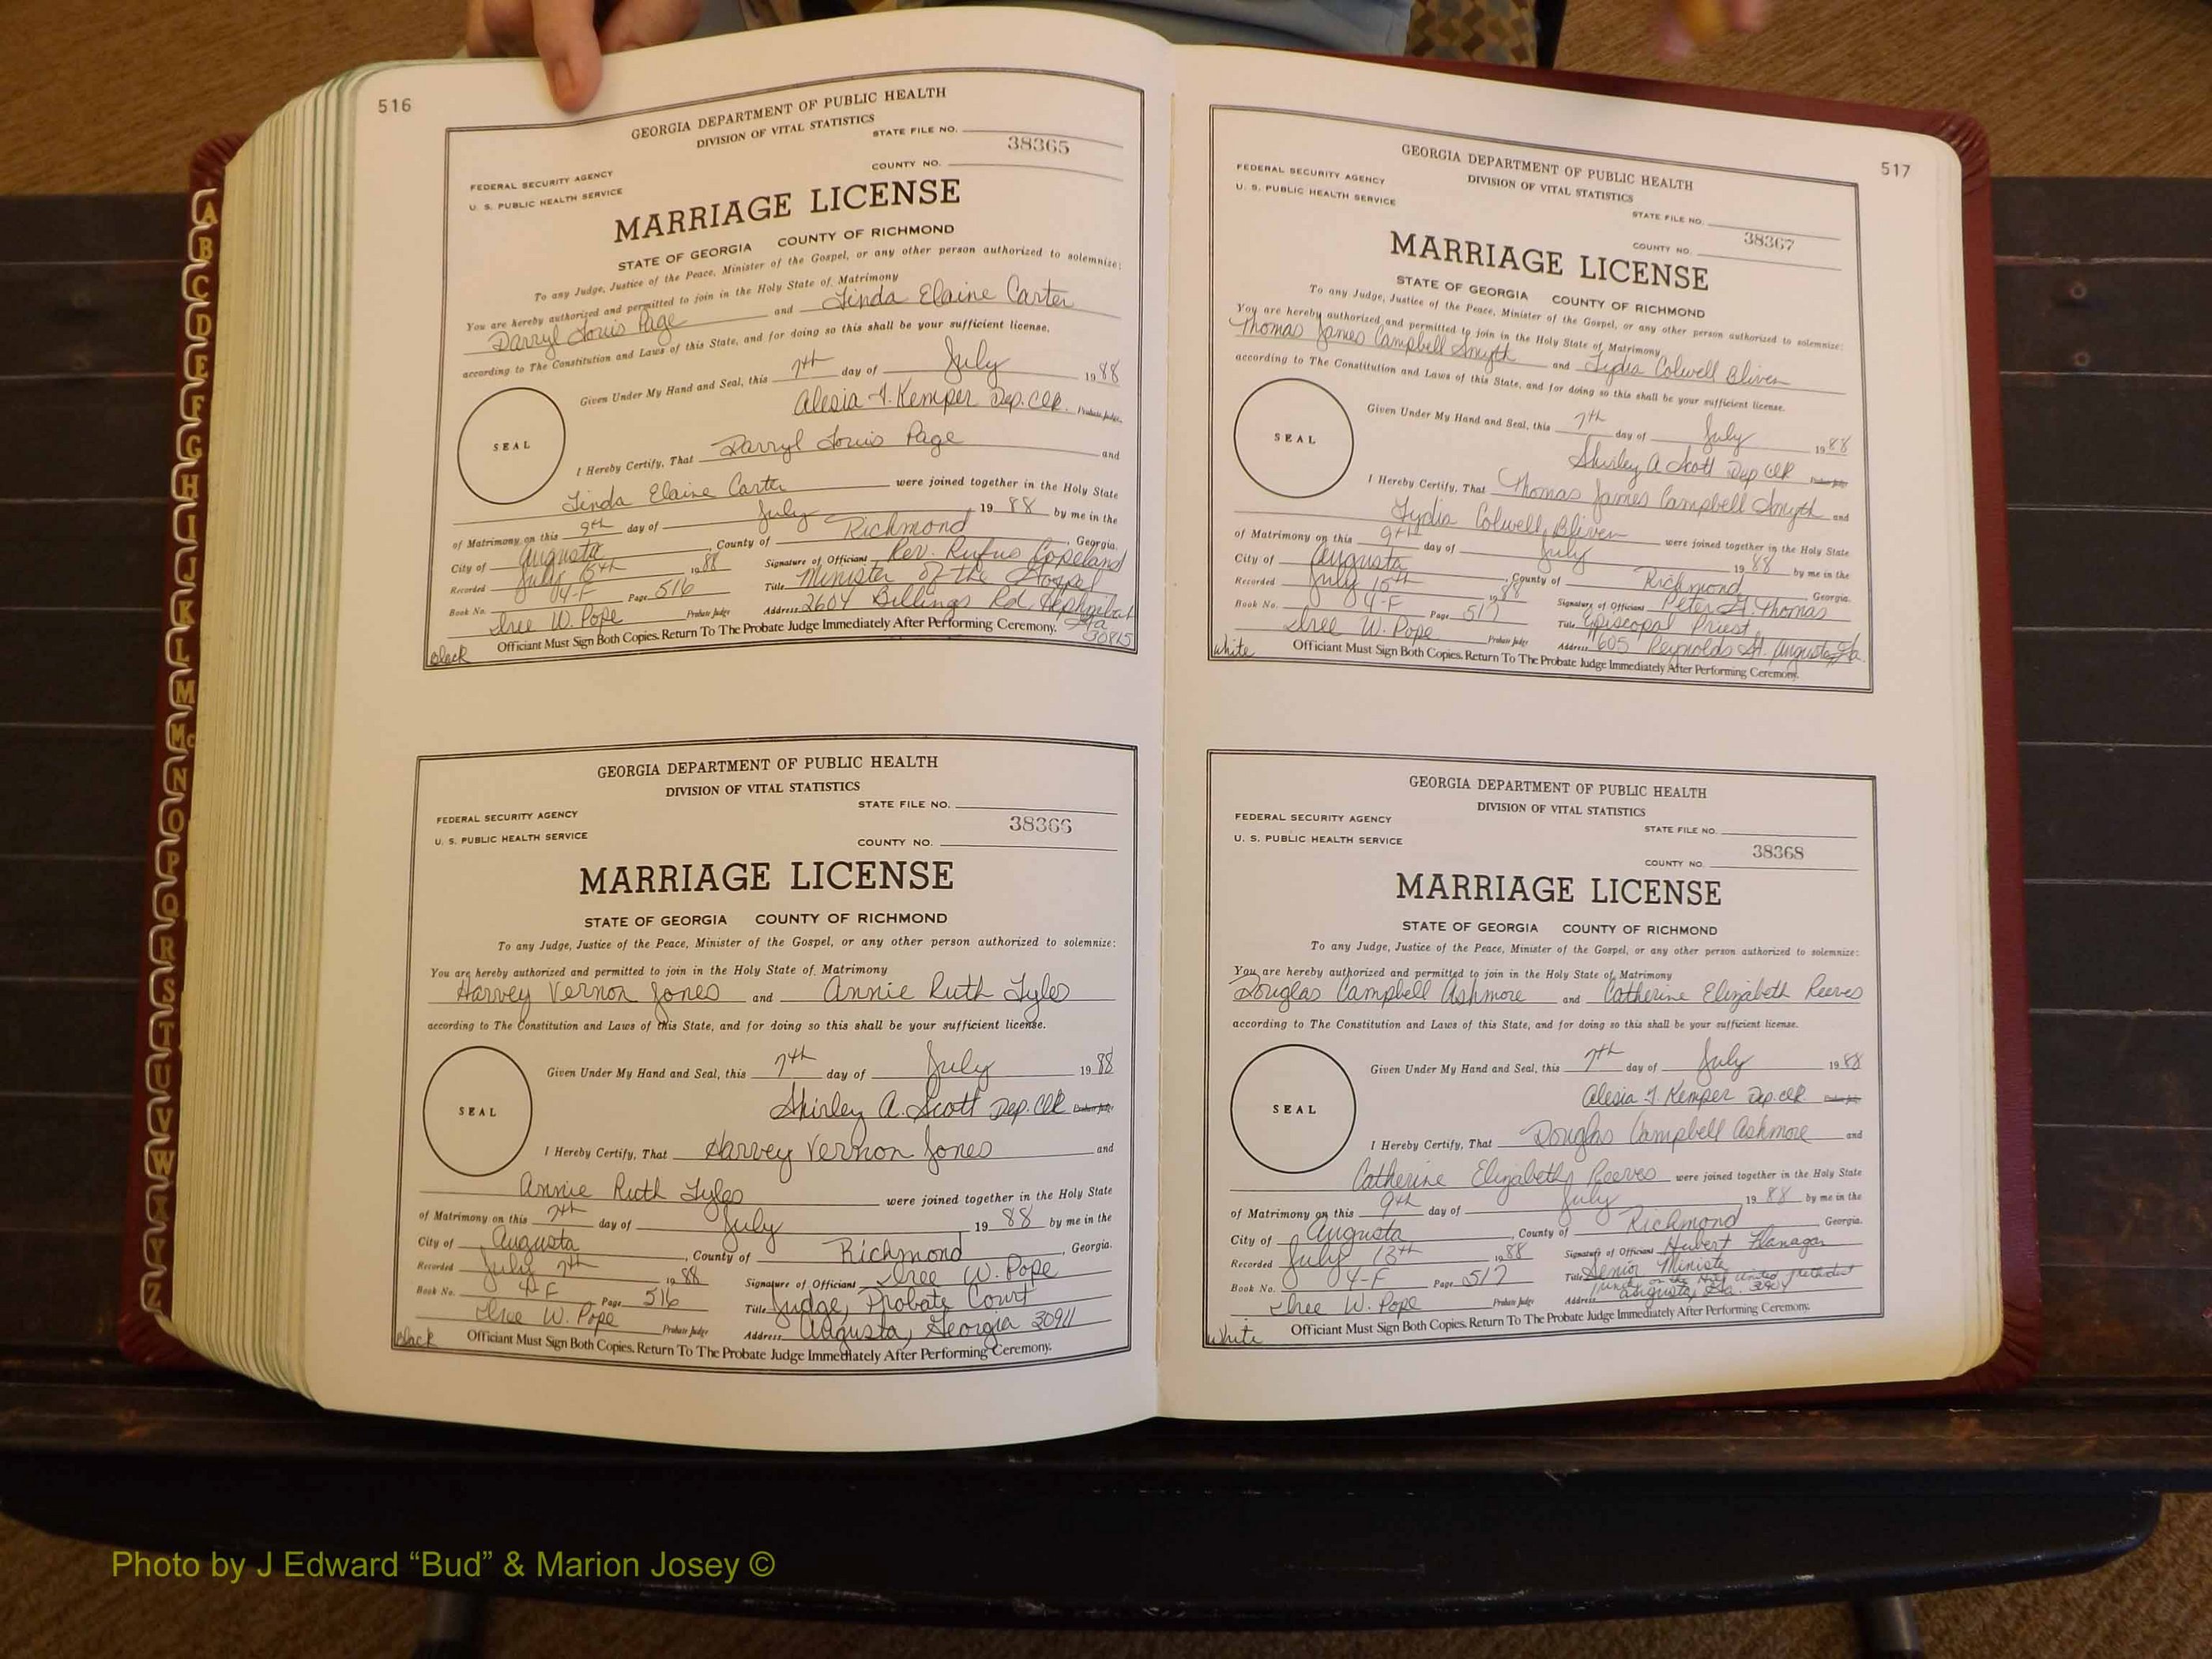 516
GEORGIA DEPARTMENT OF PUBLIC HEALTH
DIVISION OF VITAL STATISTICS
STATE FILE NO.
38365
COUNTY NO.
FEDERAL SECURITY AGENCY
U. S. PUBLIC HEALTH SERVICE
MARRIAGE LICENSE
STATE OF GEORGIA COUNTY OF RICHMOND
To any Judge, Justice of the Peace, Minister of the Gospel, or any other person authorized to solemnize:
You are hereby authorized and permitted to join in the Holy State of Matrimony
Darryl Louis Page and Linda Elaine Carter
according to The Constitution and Laws of this State, and for doing so this shall be your sufficient license.
Given Under My Hand and Seal, this 7th day of July 1988
Alesia J. Kemper Dep. Clk. Probate Judge
SEAL
I Hereby Certify, That Darryl Louis Page and
Linda Elaine Carter were joined together in the Holy State
of Matrimony on this 9th day of July 1988 by me in the
City of Augusta County of Richmond, Georgia.
Recorded July 1988 Signature of Officiant Rev. Rufus Copeland
Book No. 4-F Page 516 Title Minister of the Gospel
Dree W. Pope Probate Judge Address 2604 Billings Rd. Hephzibah
Ga 30815
Officiant Must Sign Both Copies. Return To The Probate Judge Immediately After Performing Ceremony.
Black
GEORGIA DEPARTMENT OF PUBLIC HEALTH
DIVISION OF VITAL STATISTICS
STATE FILE NO.
38366
COUNTY NO.
FEDERAL SECURITY AGENCY
U. S. PUBLIC HEALTH SERVICE
MARRIAGE LICENSE
STATE OF GEORGIA COUNTY OF RICHMOND
To any Judge, Justice of the Peace, Minister of the Gospel, or any other person authorized to solemnize:
You are hereby authorized and permitted to join in the Holy State of Matrimony
Harvey Vernon Jones and Annie Ruth Lyles
according to The Constitution and Laws of this State, and for doing so this shall be your sufficient license.
Given Under My Hand and Seal, this 7th day of July 1988
Shirley A. Scott Dep. Clk Probate Judge
SEAL
I Hereby Certify, That Harvey Vernon Jones and
Annie Ruth Lyles were joined together in the Holy State
of Matrimony on this 7th day of July 1988 by me in the
City of Augusta, County of Richmond, Georgia.
Recorded July 7th 1988 Signature of Officiant Dree W. Pope
Book No. 4-F Page 516 Title Judge, Probate Court
Dree W. Pope Probate Judge Address Augusta, Georgia 30911
Officiant Must Sign Both Copies. Return To The Probate Judge Immediately After Performing Ceremony.
Black
517
GEORGIA DEPARTMENT OF PUBLIC HEALTH
DIVISION OF VITAL STATISTICS
STATE FILE NO.
38367
COUNTY NO.
FEDERAL SECURITY AGENCY
U. S. PUBLIC HEALTH SERVICE
MARRIAGE LICENSE
STATE OF GEORGIA COUNTY OF RICHMOND
To any Judge, Justice of the Peace, Minister of the Gospel, or any other person authorized to solemnize:
You are hereby authorized and permitted to join in the Holy State of Matrimony
Thomas James Campbell Smyth and Lydia Colwell Bliven
according to The Constitution and Laws of this State, and for doing so this shall be your sufficient license.
Given Under My Hand and Seal, this 7th day of July 1988
Shirley A Scott Dep Clk Probate Judge
SEAL
I Hereby Certify, That Thomas James Campbell Smyth and
Lydia Colwell Bliven were joined together in the Holy State
of Matrimony on this 9th day of July 1988 by me in the
City of Augusta, County of Richmond, Georgia.
Recorded July 1988 Signature of Officiant Peter G. Thomas
Book No. 4-F Page 517 Title Episcopal Priest
Dree W. Pope Probate Judge Address 605 Reynolds St. Augusta, Ga.
Officiant Must Sign Both Copies. Return To The Probate Judge Immediately After Performing Ceremony.
White
GEORGIA DEPARTMENT OF PUBLIC HEALTH
DIVISION OF VITAL STATISTICS
STATE FILE NO.
38368
COUNTY NO.
FEDERAL SECURITY AGENCY
U. S. PUBLIC HEALTH SERVICE
MARRIAGE LICENSE
STATE OF GEORGIA COUNTY OF RICHMOND
To any Judge, Justice of the Peace, Minister of the Gospel, or any other person authorized to solemnize:
You are hereby authorized and permitted to join in the Holy State of Matrimony
Douglas Campbell Ashmore and Catherine Elizabeth Reeves
according to The Constitution and Laws of this State, and for doing so this shall be your sufficient license.
Given Under My Hand and Seal, this 7th day of July 1988
Alesia J. Kemper Dep. Clk Probate Judge
SEAL
I Hereby Certify, That Douglas Campbell Ashmore and
Catherine Elizabeth Reeves were joined together in the Holy State
of Matrimony on this 9th day of July 1988 by me in the
City of Augusta, County of Richmond, Georgia.
Recorded July 1988 Signature of Officiant Hubert Flanagan
Book No. 4-F Page 517 Title Senior Ministe
on the Hill United Methodist
Dree W. Pope Probate Judge Address Augusta, Ga.
Officiant Must Sign Both Copies. Return To The Probate Judge Immediately After Performing Ceremony.
White
A
B
C
D
E
F
G
H
I
J
K
L
M
Mc
N
O
P
Q
R
S
T
U
V
W
X
Y
Z
Photo by J Edward “Bud” & Marion Josey ©